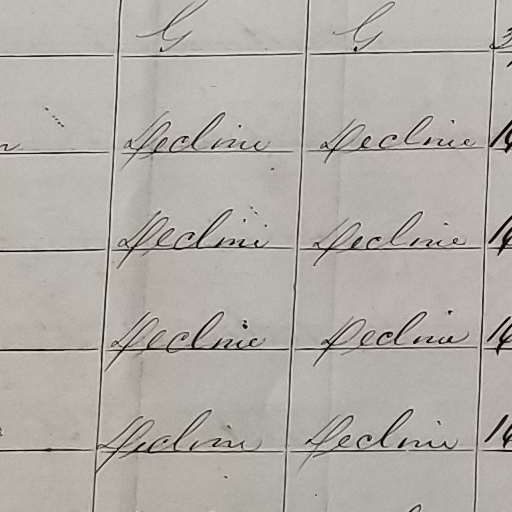 G G
Decline Decline
Decline Decline
Decline Decline
Decline Decline